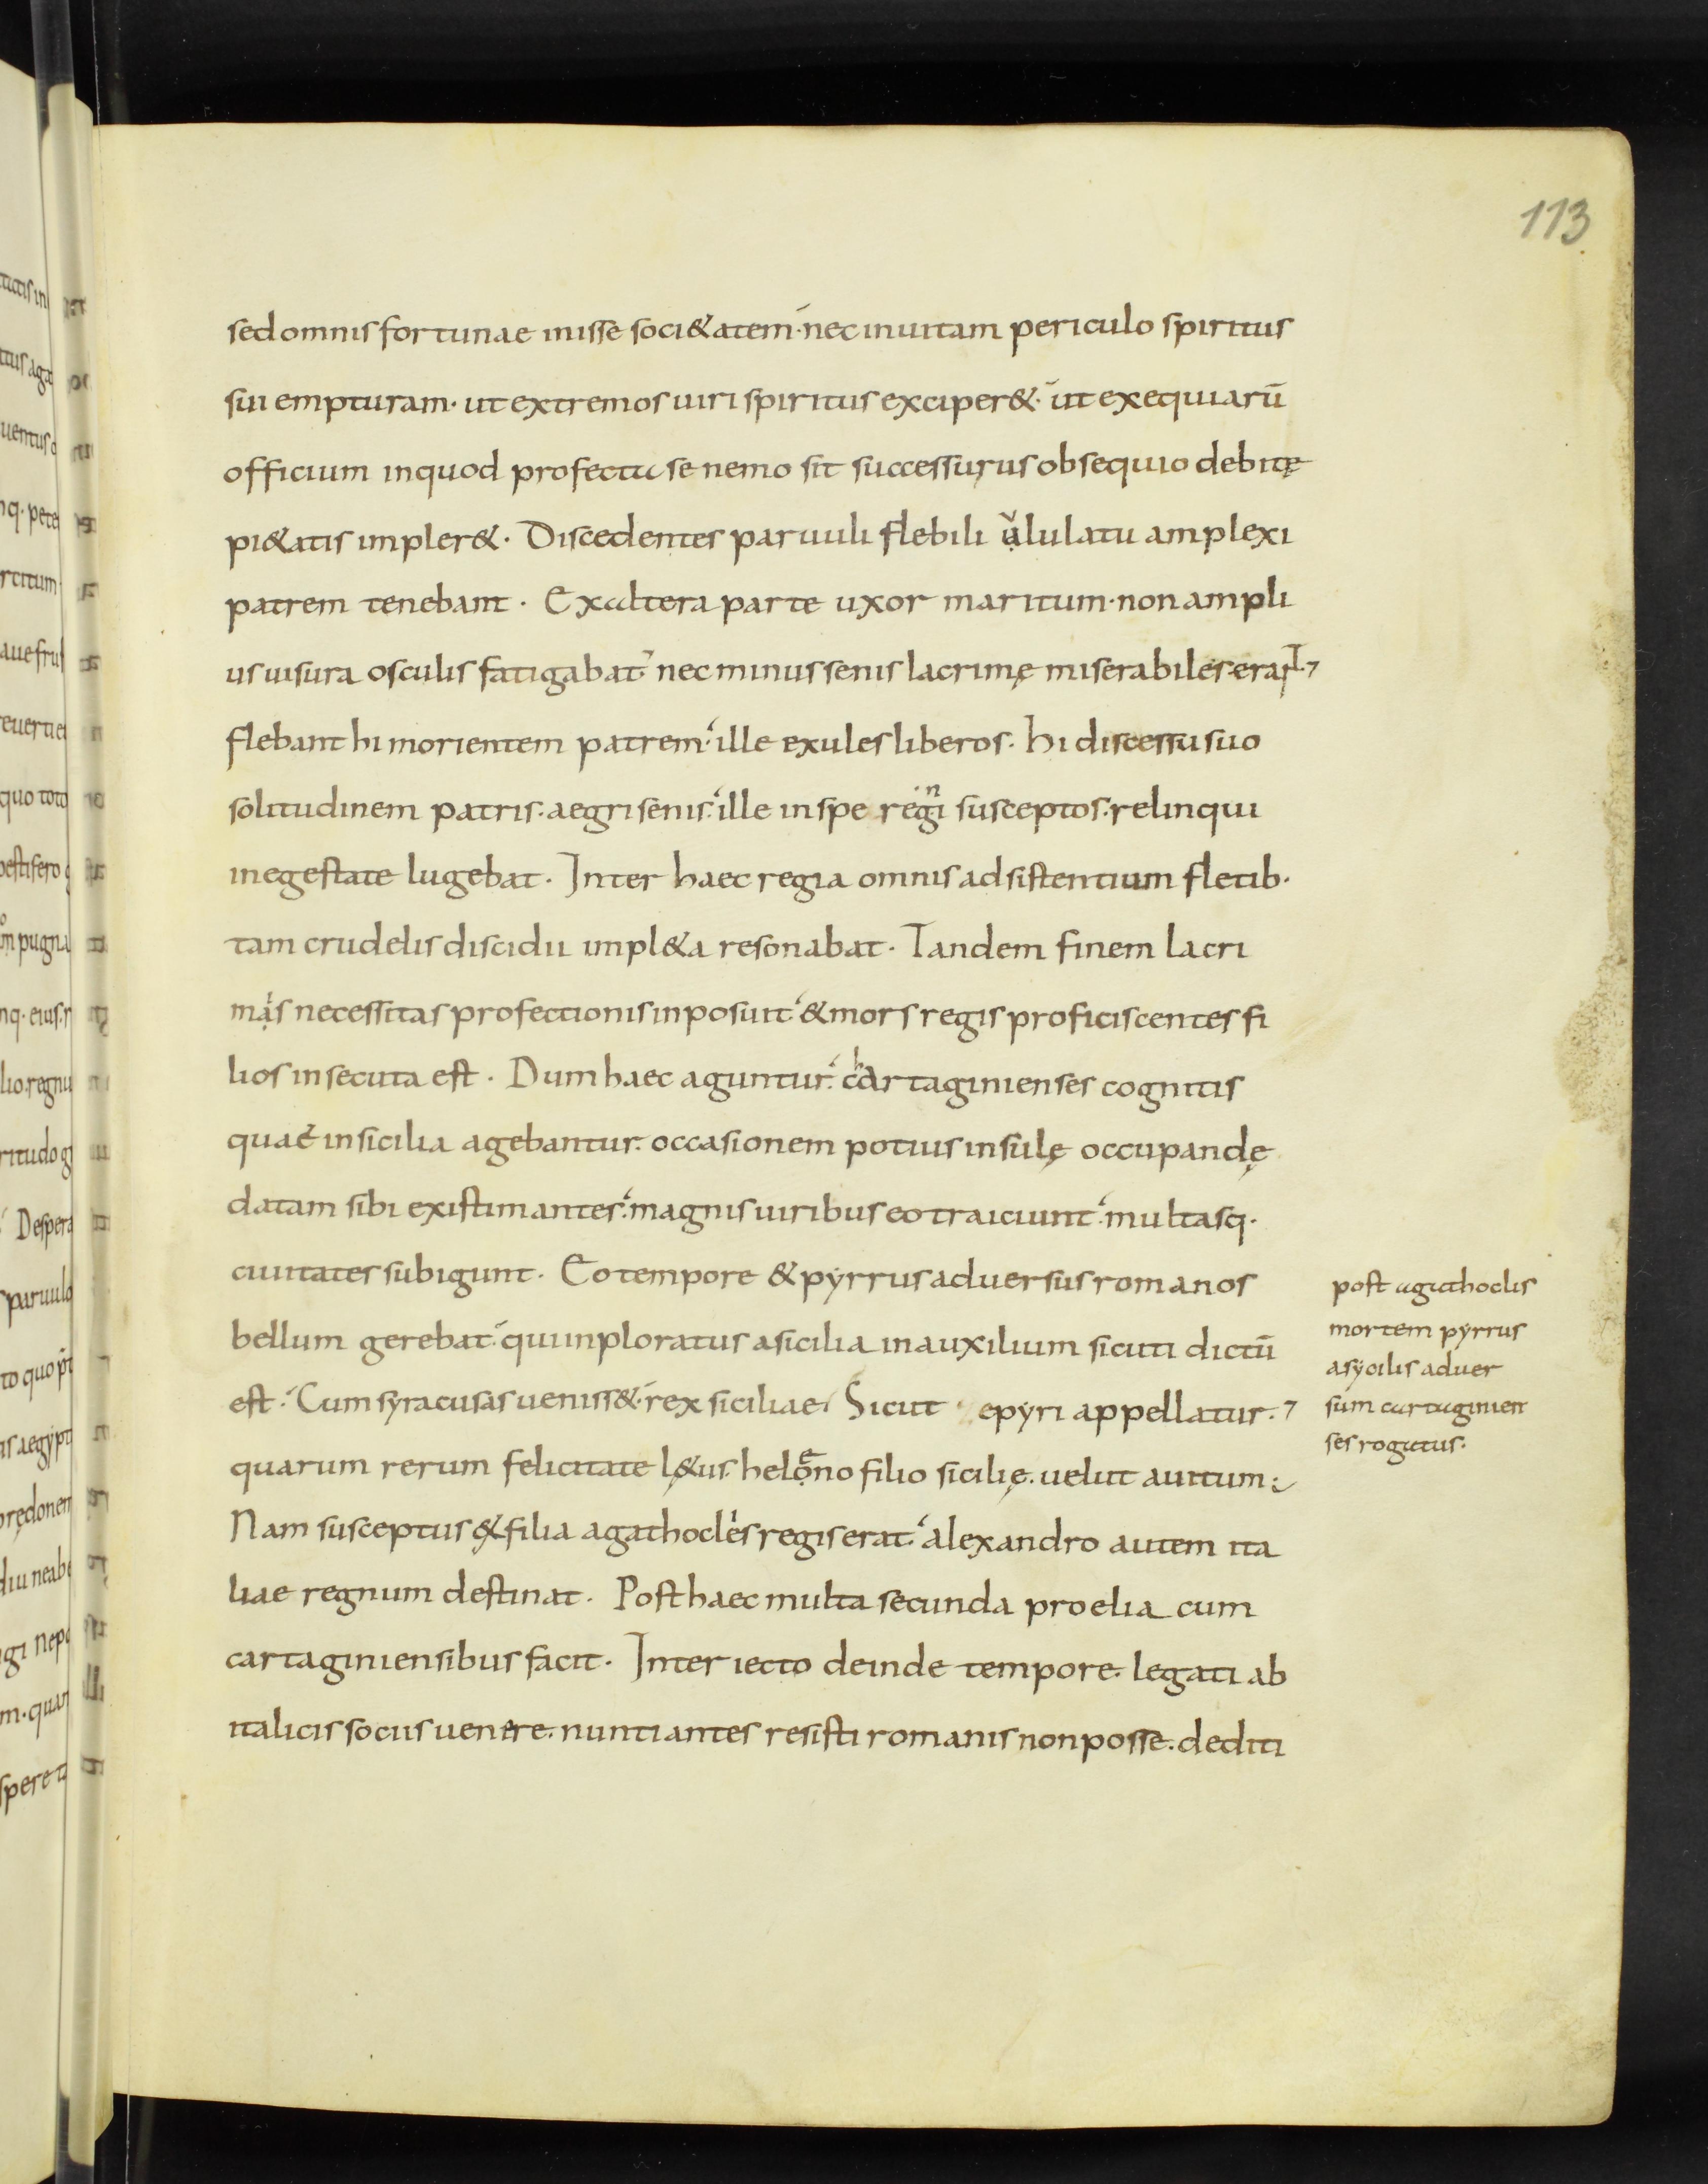 113
sed omnis fortunae inisse soci&atem· nec inuitam periculo spiritus
sui empturam· ut extremos uiri spiritus exciper&· ut exequiarū
officium in quod profecta se nemo sit successurus obsequio debitę
pi&atis impler&· Discedentes paruuli flebili ululatu amplexi
patrem tenebant· Ex altera parte uxor maritum· non ampli
us uisura osculis fatigabat· nec minus senis lacrimę miserabiles erant·
flebant hi morientem patrem· ille exules liberos· hi discessu suo
solitudinem patris· aegri senis· ille in spe regni susceptos· relinqui
in egestate lugebat· Inter haec regia omnis adsistentium fletib·
tam crudelis discidii impl&a resonabat· Tandem finem lacri
mis necessitas profectionis inposuit· & mors regis proficiscentes fi
lios insecuta est· Dum haec aguntur· chartaginienses cognitis
quae in sicilia agebantur· occasionem potius insulę occupandę
datam sibi existimantes· magnis uiribus eo traiciunt· multasq·
ciuitates subigunt· Eo tempore & pyrrus aduersus romanos
bellum gerebat· qui inploratus a sicilia in auxilium sicuti dictū
est· Cum syracusas ueniss&· rex siciliae Sicut epyri appellatur·
quarum rerum felicitate l&us· heleno filio sicilię· uelut auitum·
Nam susceptus & filia agathoclis regis erat· alexandro autem ita
liae regnum destinat· Post haec multa secunda proelia cum
cartaginiensibus facit· Interiecto deinde tempore· legati ab
italicis sociis uenere· nuntiantes resisti romanis non posse· dediti
post agathoclis
mortem pyrrus
a sycilis aduer
sum cartaginien
ses rogatus·